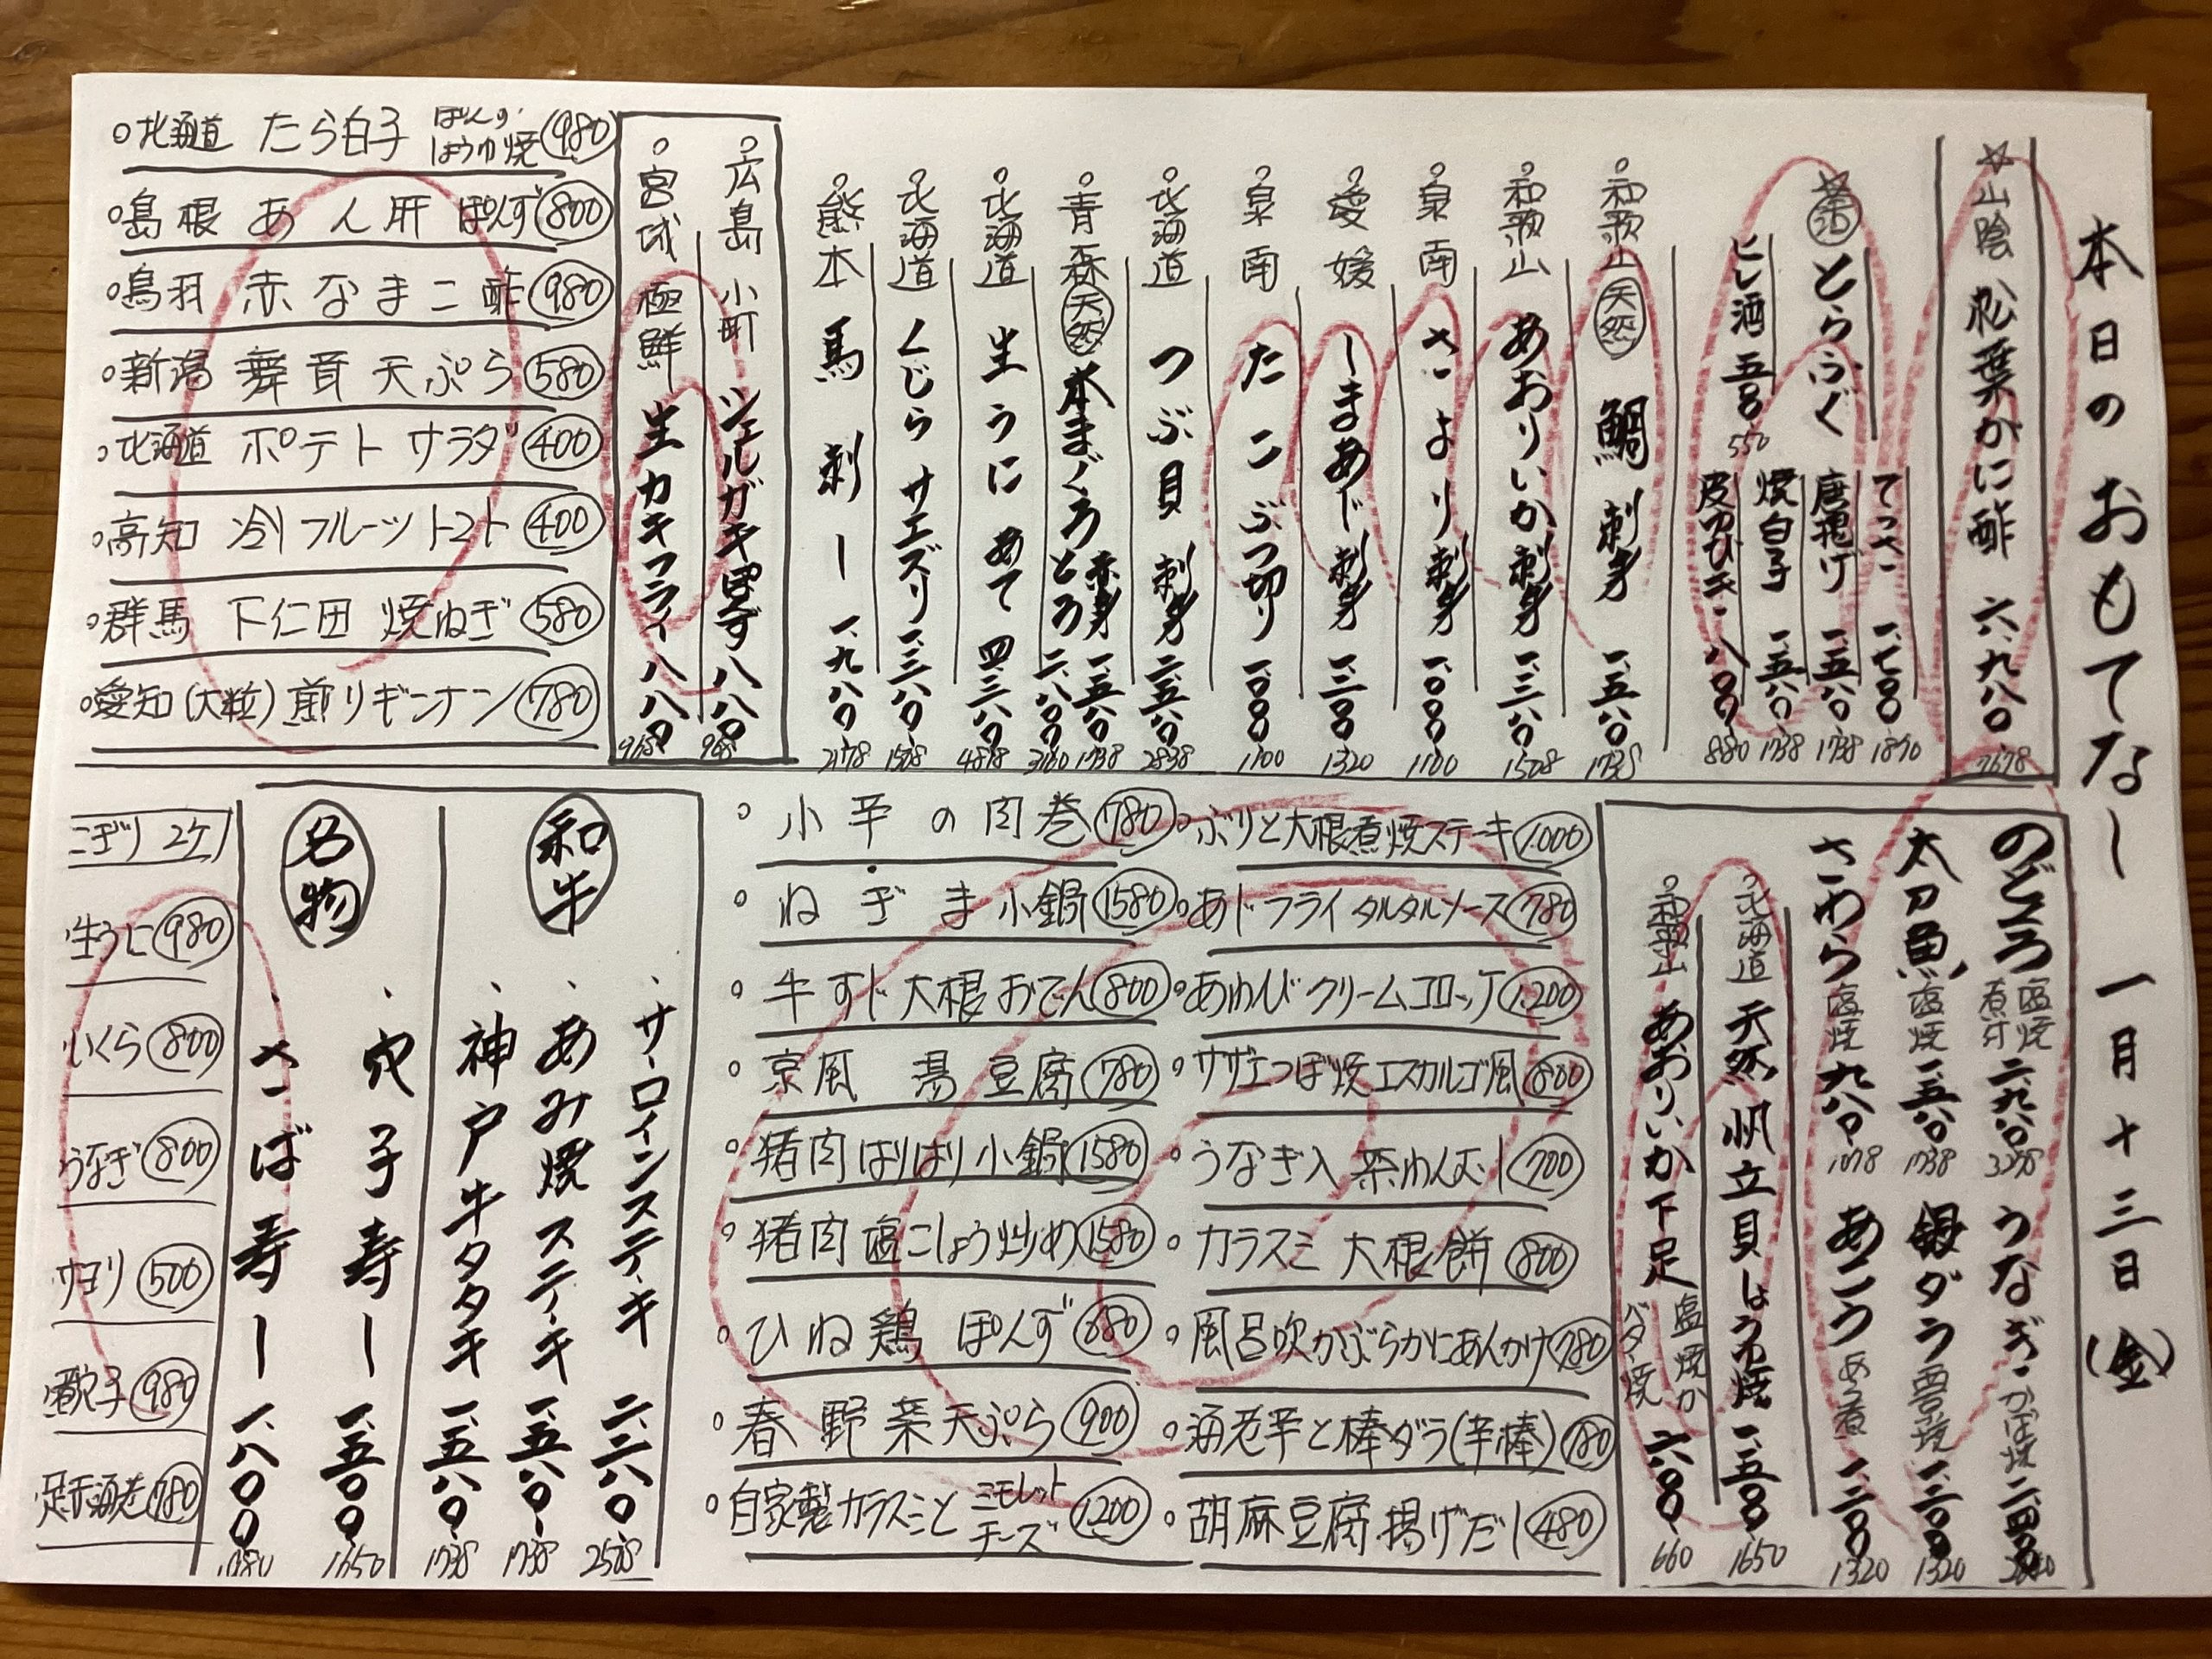 本日のおもてなし 一月十三日(金)
☆山陰 松葉かに酢 六、九八〇 7678
☆活 とらふぐ
てっさ 一、七〇〇 1870
唐揚げ 一、五八〇 1738
焼白子 一、五八〇 1738
皮ゆびき 八〇〇 880
ヒレ酒 五五〇 550
和歌山 天然 鯛 刺身 一、五八〇 1738
和歌山 あおりいか刺身 一、三八〇 1508
泉南 さより刺身 一、〇〇〇 1100
愛媛 しまあじ刺身 一、二〇〇 1320
泉南 たこぶつ切り 一、〇〇〇 1100
北海道 つぶ貝刺身 二、五八〇 2838
青森 天然 本まぐろ 赤身 一、五八〇 1738
とろ 二、八〇〇
北海道 生うに あて 四、三八〇
北海道 くじらサエズリ 一、三八〇 1508
熊本 馬刺し 一、九八〇 2178
広島 小町 シェルガキぽんず 八八〇 968
宮城 極鮮 生カキフライ 八八〇 968
北海道 たら白子 ぽんず しょうゆ焼 980
島根 あん肝 ぽんず 800
鳥羽 赤なまこ酢 980
新潟 舞茸天ぷら 580
北海道 ポテトサラダ 400
高知 冷フルーツトマト 400
群馬 下仁田 焼ねぎ 580
愛知(大粒)煎りギンナン 780
のどぐろ 塩焼 煮付 二、九八〇 3278
うなぎ かば焼 二、四〇〇
太刀魚 塩焼 一、五八〇 1738
銀ダラ 西京焼 一、二〇〇 1320
さわら 塩焼 九八〇 1078
あこう あら煮 一、二〇〇 1320
北海道 天然帆立貝しょうゆ焼 一、五〇〇 1650
和歌山 あおりいか下足 塩焼か バター焼 六〇〇 660
ぶりと大根煮焼ステーキ 1.000
あじフライ タルタルソース 780
あわびクリームコロッケ 1.200
サザエつぼ焼エスカルゴ風 800
うなぎ入 茶わんむし 700
カラスミ大根餅 800
風呂吹かぶらかにあんかけ 780
海老芋と棒ダラ(芋棒) 780
胡麻豆腐揚げだし 480
小芋の肉巻 780
ねぎま小鍋 1580
牛すじ大根おでん 800
京風 湯豆腐 780
猪肉はりはり小鍋 1580
猪肉塩こしょう炒め 1580
ひね鶏 ぽんず 680
春野菜天ぷら 900
自家製カラスミとミモレットチーズ 1200
和牛
サーロインステーキ 二、二八〇 2508
あみ焼ステーキ 一、五八〇 1738
神戸牛タタキ 一、五八〇 1738
名物
穴子寿し 一、五〇〇 1650
さば寿し 一、八〇〇
にぎり 2ケ
生うに 980
いくら 800
うなぎ 800
サヨリ 500
煮穴子 980
足赤海老 780